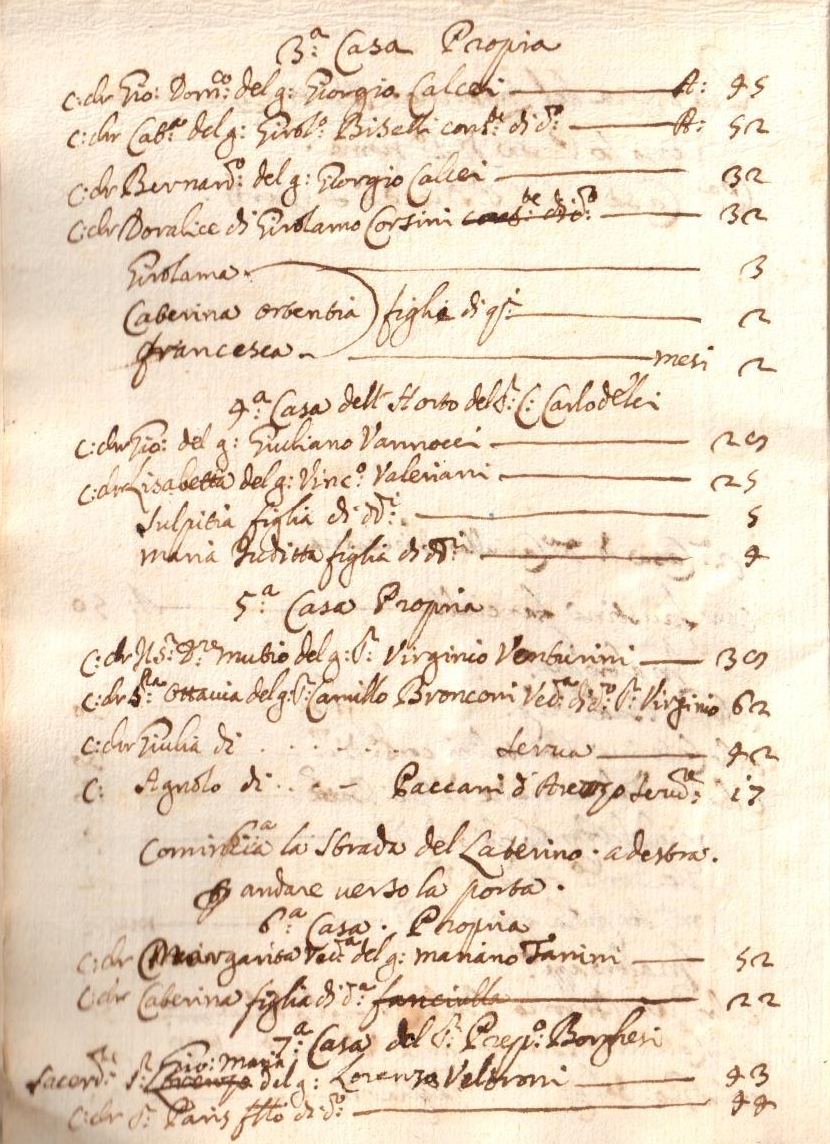 3.a Casa Propria
C: chr Gio: Dom:co del g: Giorgio Calcei A: 45
C: chr Cat:a del g: Girol:o Biselli cons:te di d:o A: 52
C: chr Bernard:o del g: Giorgio Calcei 32
C: chr Doralice di Girolamo Corsini cons:te di d:o 32
Girolama 3
Caterina Ortentia figlie di qs:ti 2
francesca mesi 2
4.a Casa dell'Horto del S:r C: Carlo d'Elci
C: chr Gio: del g: Giuliano Vannocci 29
C: chr Lisabetta del g: Vinc:o Valeriani 25
Sulpitia figlia di dd:i 5
Maria Iuditta figlia di dd:i 4
5.a Casa Propria
C: chr Il S:r D:re Mutio del g: S:r Virginio Venturini 39
C: chr S:ra Ottavia del g: S:r Camillo Bronconi Ved:a di d:o S:r Virginio 62
C: chr Giulia di . . . . . . serva 42
C: Agnolo di . . . - Paccani d'Arezzo serv:re 17
Comincia la Strada del Laterino . a destra .
andare verso la porta .
6.a Casa . Propria
C: chr Margarita Ved:a del g: Mariano Fanini 52
C: chr Caterina figlia di d:a fanciulla 22
7.a Casa del S:r Prep:o Borghesi
Sacerd:te S:r Lorenzo Gio: Maria del g: Lorenzo Veltroni 43
C: chr S:r Paris fllo di d:o 44